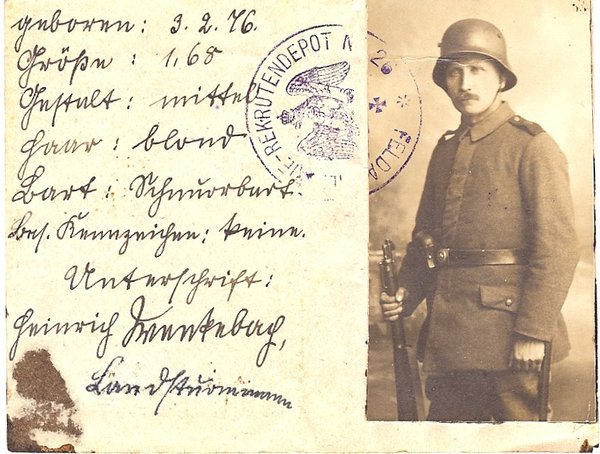 geboren: 3. 2. 76.
Größe: 1,68
Gestalt: mittel
Haar: blond
Bart: Schnurrbart.
Bes. Kennzeichen: keine.
Unterschrift:
Heinrich Wenkebach,
Landsturmmann
IE-REKRUTENDEPOT N 26 * FELDA